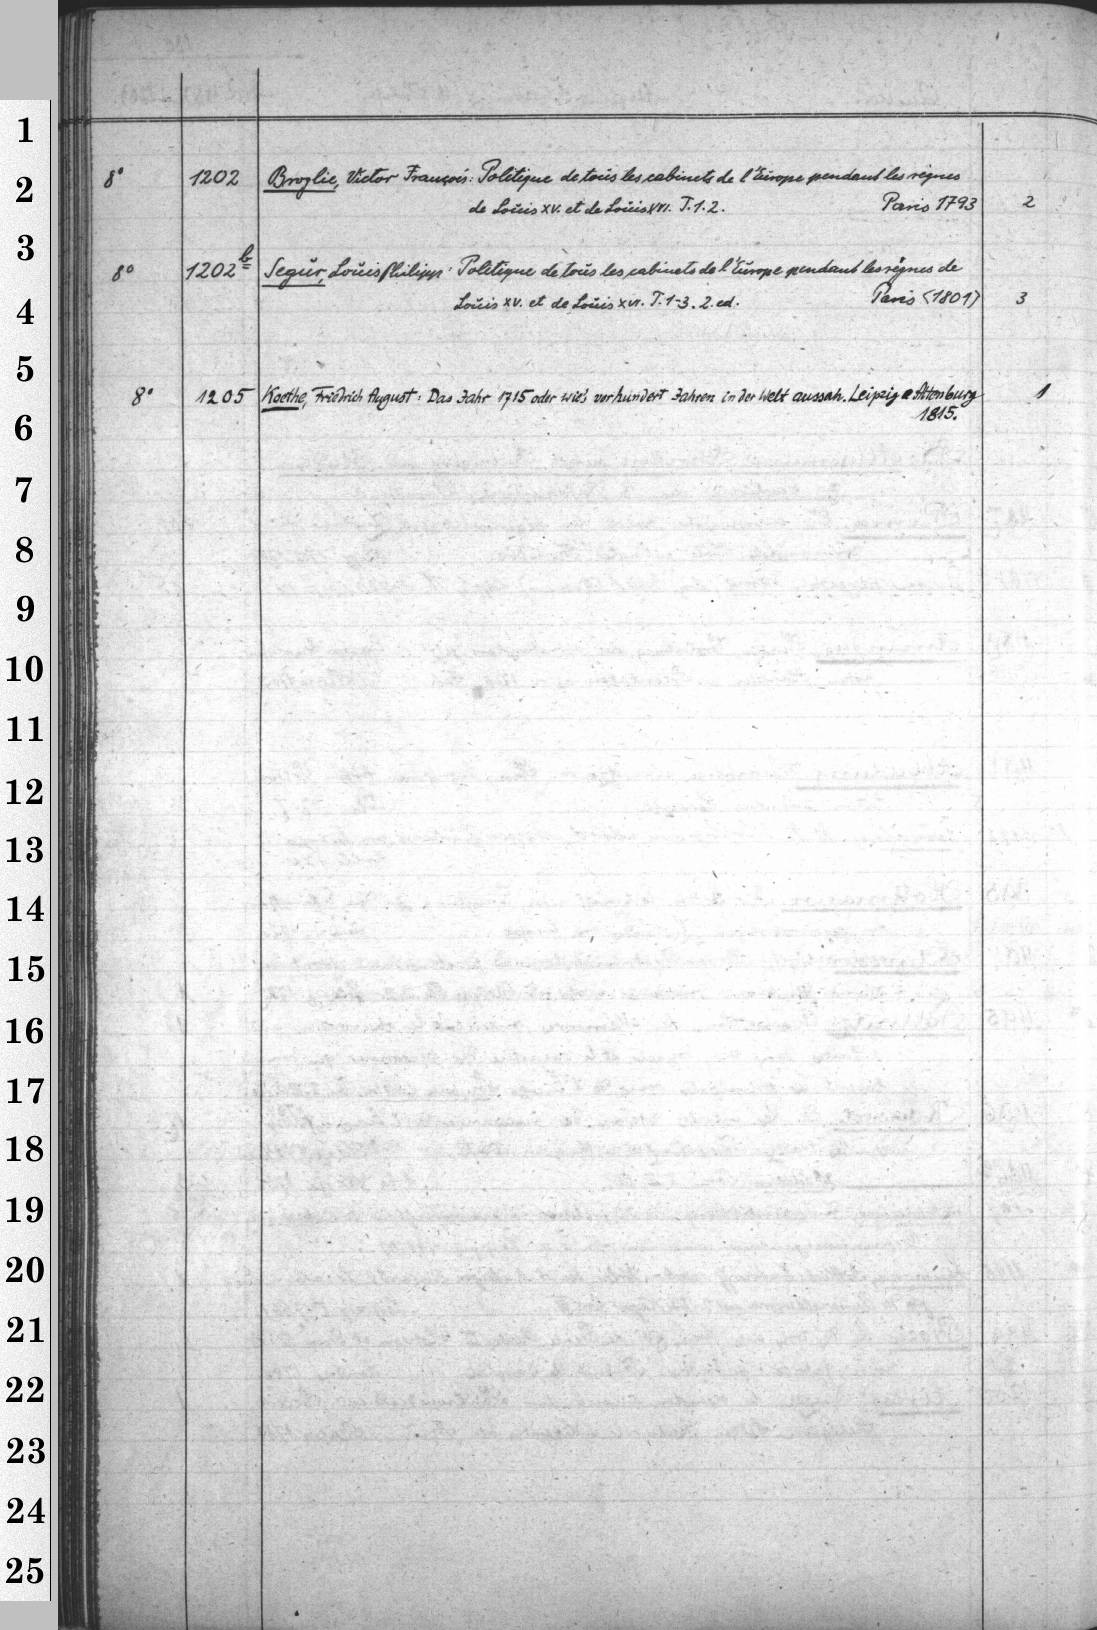 1
2
3
4
5
6
7
8
9
10
11
12
13
14
15
16
17
18
19
20
21
22
23
24
25
8° 1202 Broglie, Victor François: Politique de tous les cabinets de l'Europe pendant les règnes
de Louis XV. et de Louis XVI. T. 1. 2. Paris 1793 2
8° 1202b Segur, Louis Philipp: Politique de tous les cabinets de l'Europe pendant les règnes de
Louis XV. et de Louis XVI. T. 1-3. 2. ed. Paris (1801) 3
8° 1205 Koethe, Friedrich August: Das Jahr 1715 oder wie's vor hundert Jahren in der Welt aussah. Leipzig & Altenburg 1
1815.